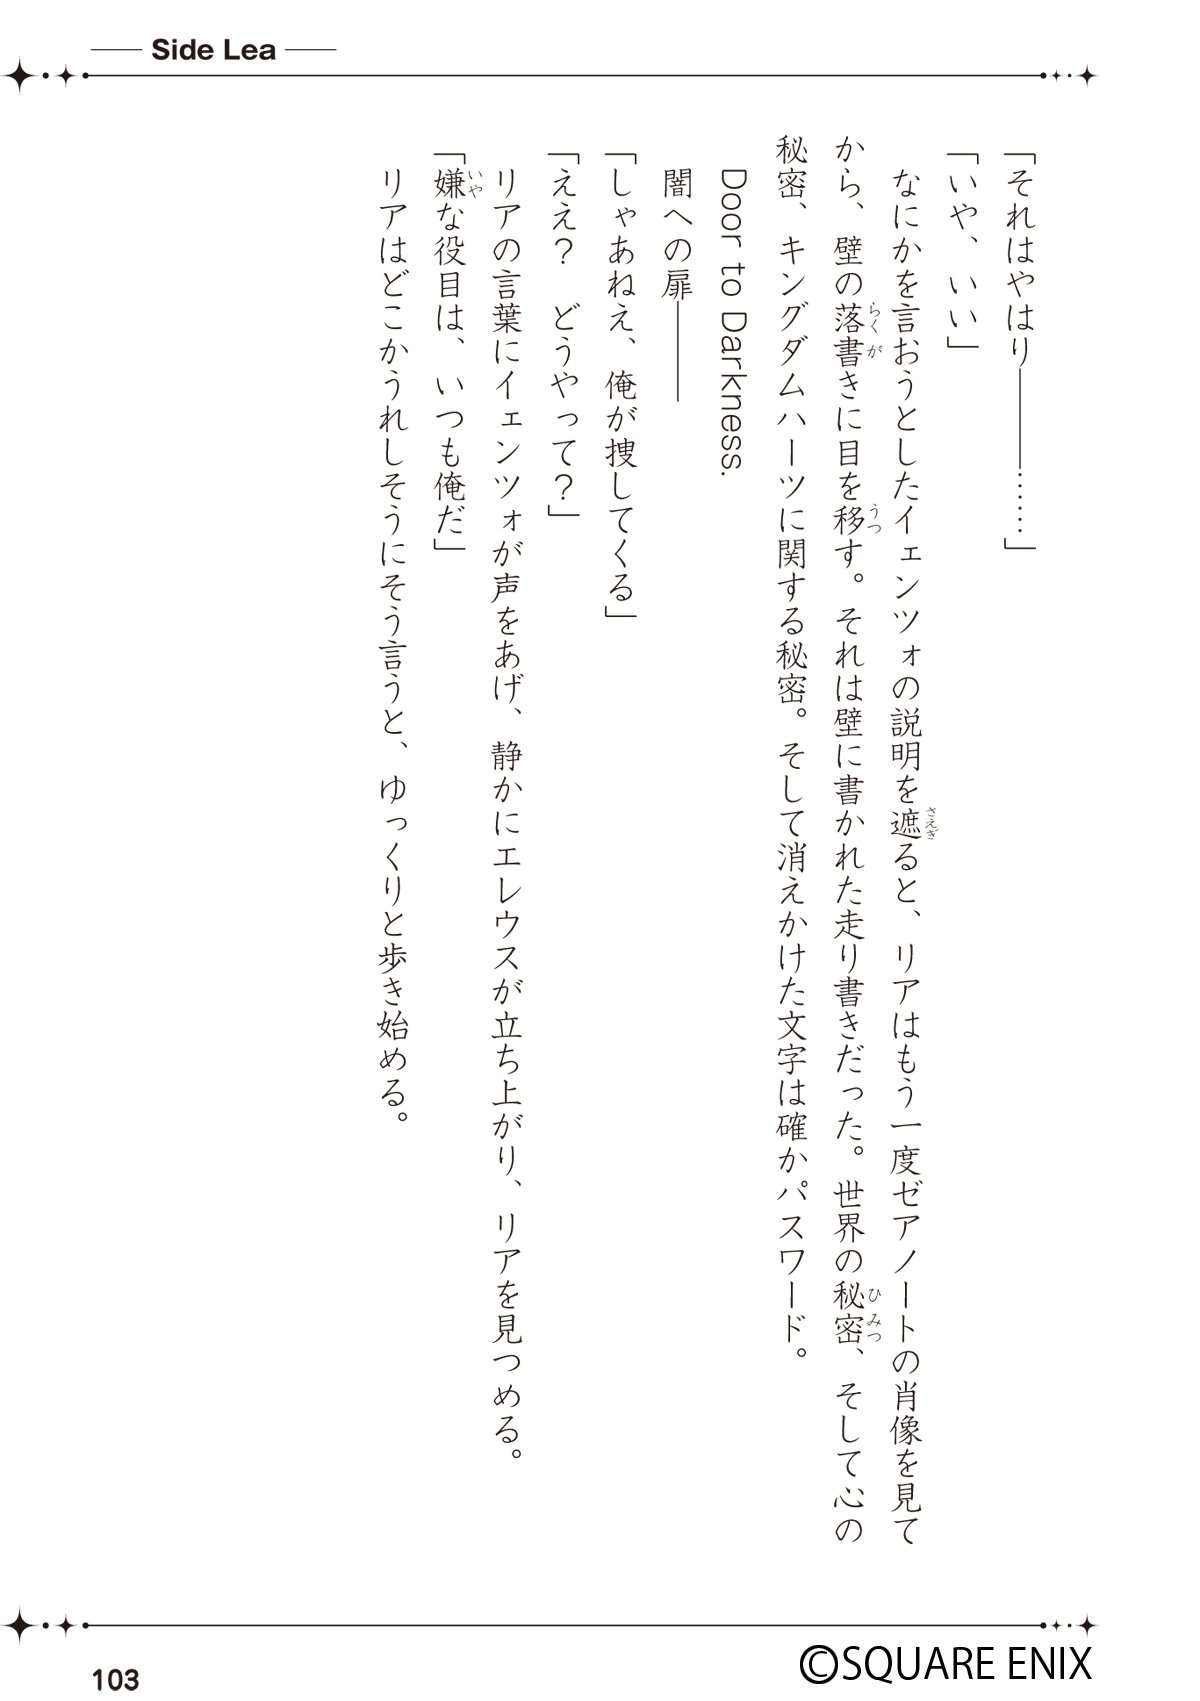 Side Lea
「それはやはり―――……」
「いや、いい」
なにかを言おうとしたイェンツォの説明を遮ると、リアはもう一度ゼアノートの肖像を見て
から、壁の落書きに目を移す。それは壁に書かれた走り書きだった。世界の秘密、そして心の
秘密、キングダムハーツに関する秘密。そして消えかけた文字は確かパスワード。
Door to Darkness.
闇への扉―――
「しゃあねえ、俺が捜してくる」
「ええ？　どうやって？」
リアの言葉にイェンツォが声をあげ、静かにエレウスが立ち上がり、リアを見つめる。
「嫌な役目は、いつも俺だ」
リアはどこかうれしそうにそう言うと、ゆっくりと歩き始める。
103
©SQUARE ENIX